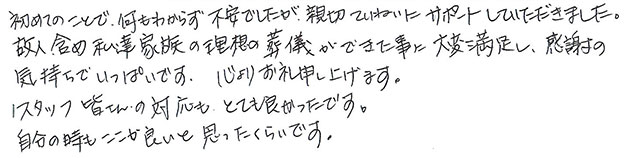 初めてのことで、何もわからず不安でしたが、親切ていねいにサポートしていただきました。
故人含め私達家族の理想の葬儀ができた事に大変満足し、感謝の
気持ちでいっぱいです。心よりお礼申し上げます。
スタッフ皆さんの対応もとても良かったです。
自分の時もここが良いと思ったくらいです。